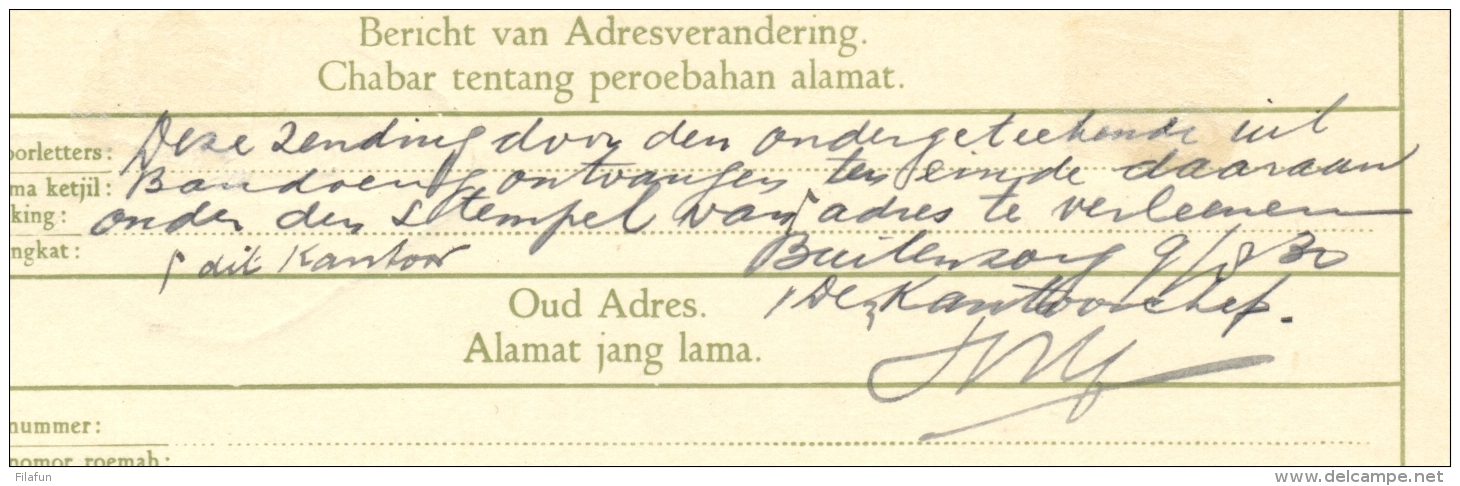 Bericht van Adresverandering.
Chabar tentang peroebahan alamat.
oorletters: Deze zending door den ondergeteekende uit
ma ketjil: Bandoeng ontvangen ten einde daaraan
king: onder den stempel van ┌ adres te verleenen
ngkat: ┌ dit Kantoor Buitenzorg 9/8 30
De Kantoorchef.
Oud Adres.
Alamat jang lama.
nummer:
nomor roemah:
Filafun
delcampe.net